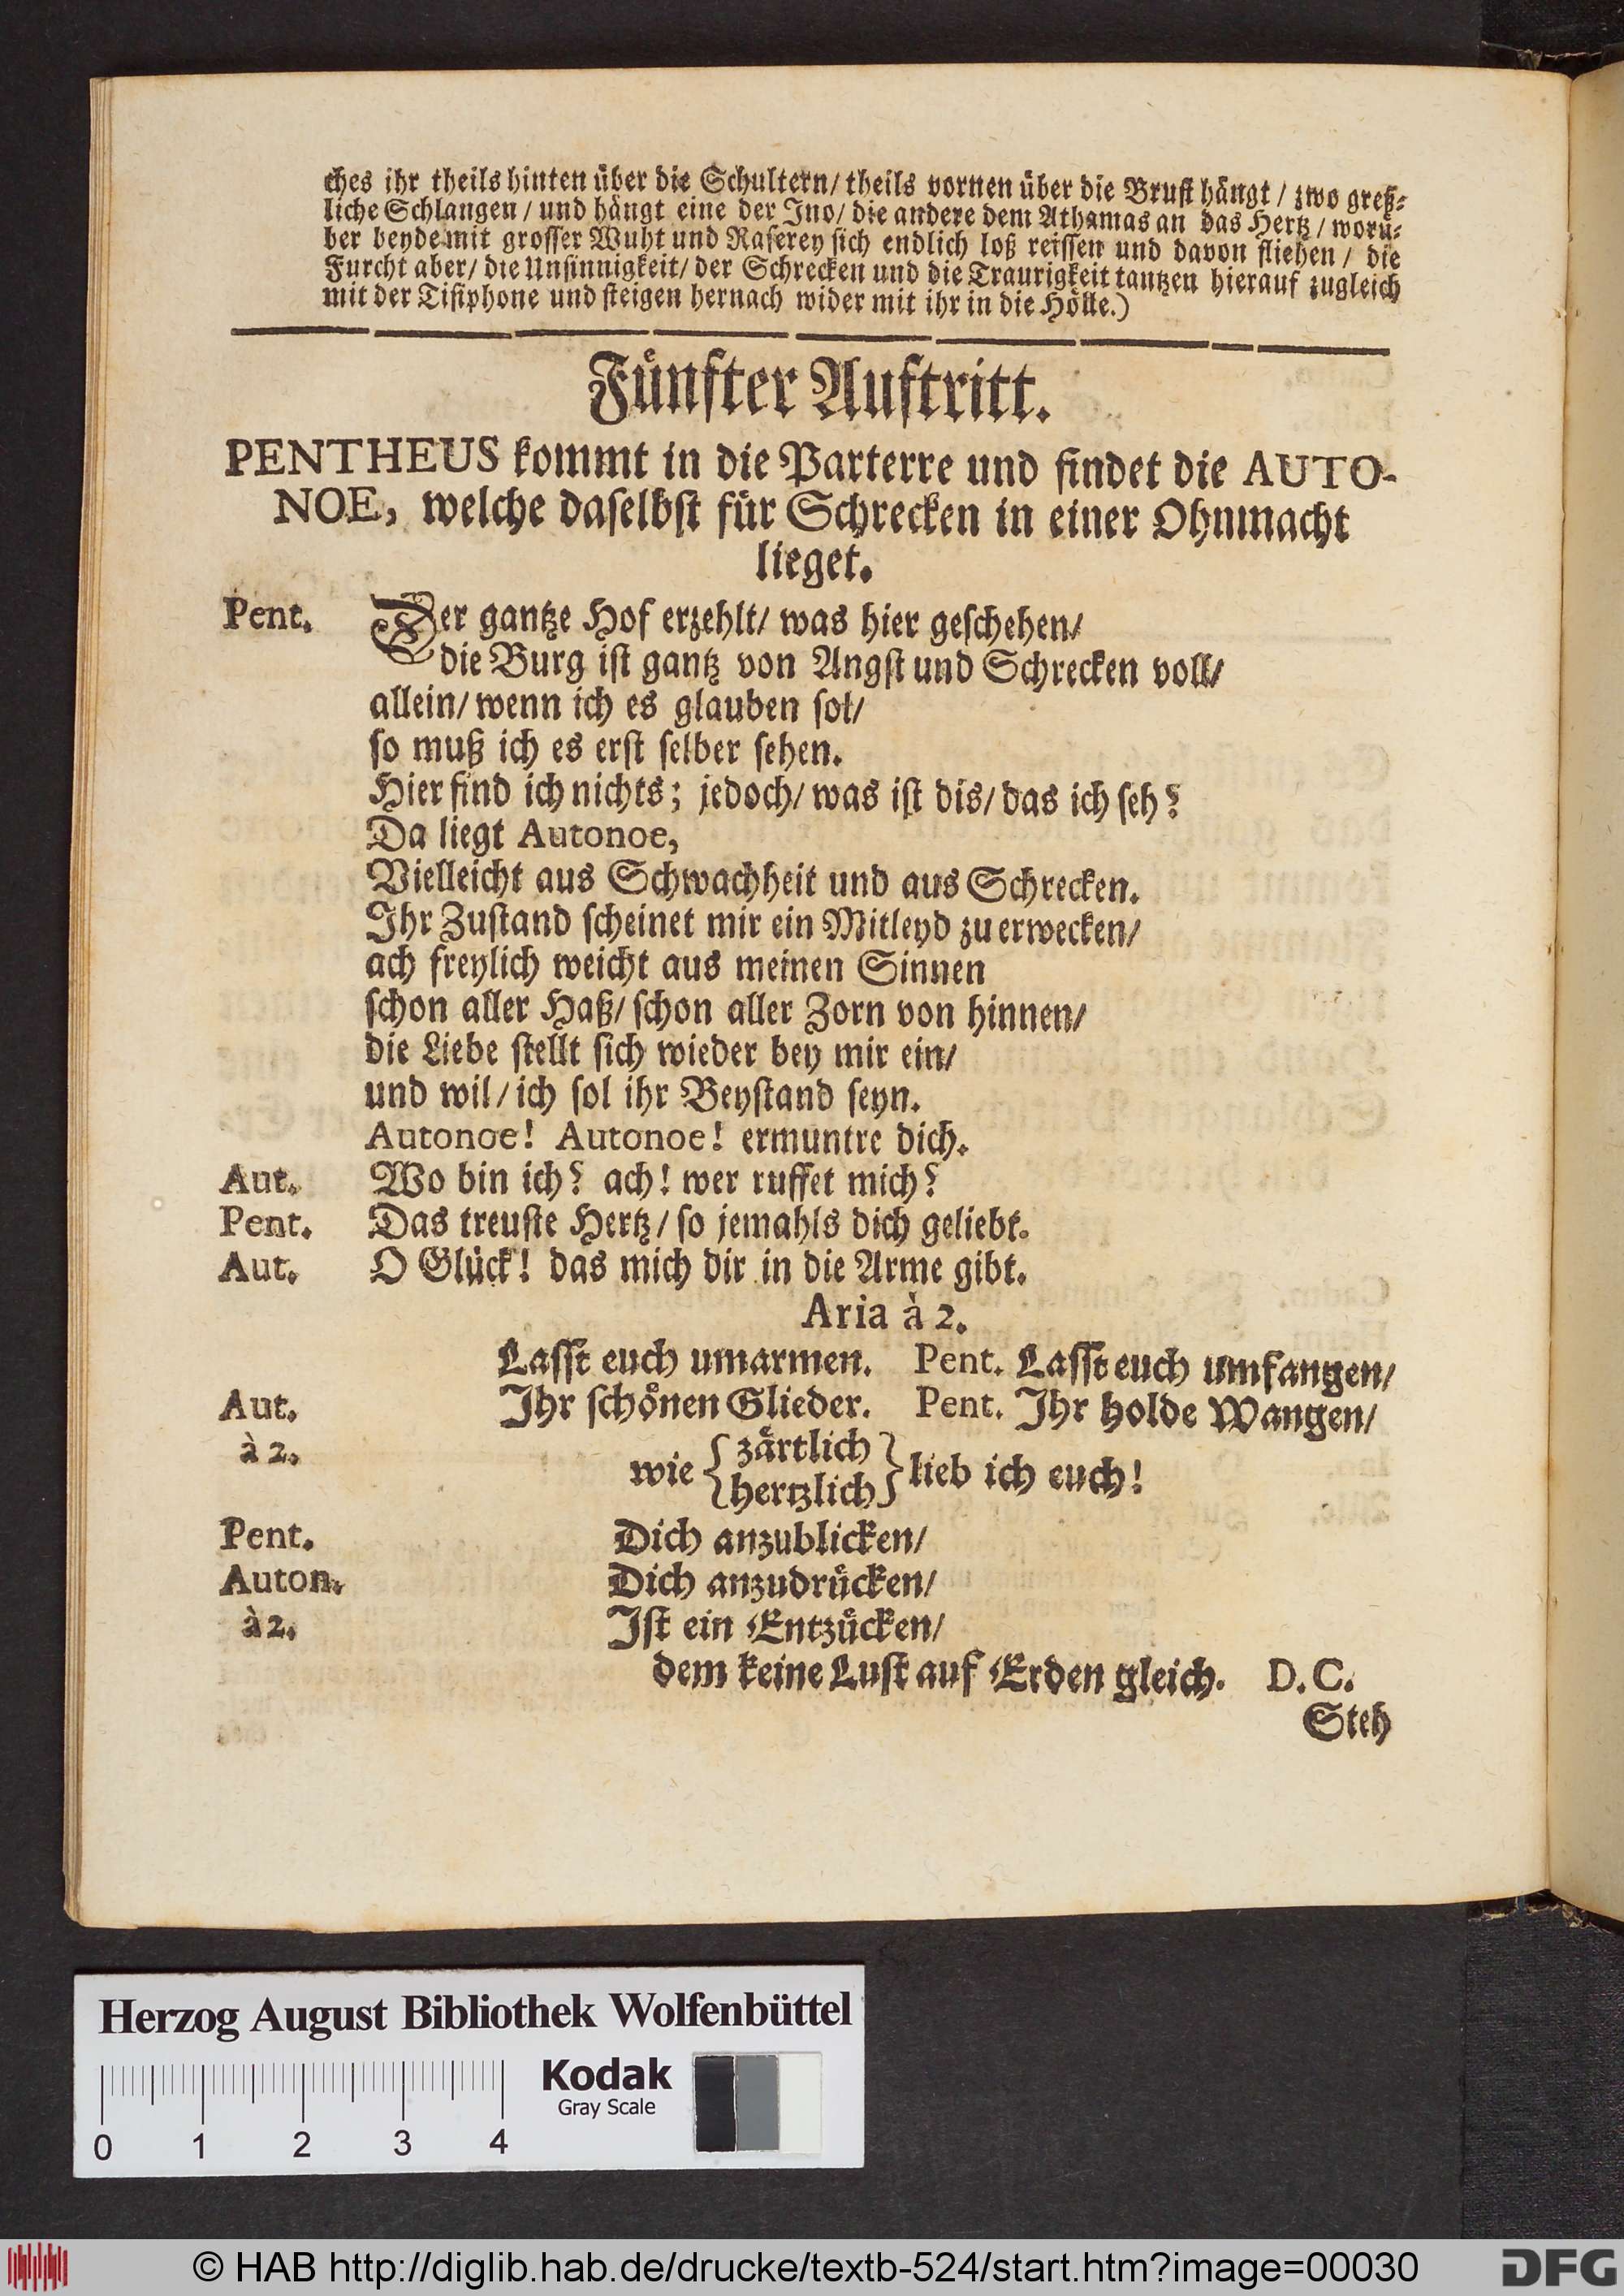 ches ihr theils hinten über die Schultern/ theils vornen über die Brust hängt / zwo greß-
liche Schlangen / und hängt eine der Ino/ die andere dem Athamas an das Hertz / worü-
ber beyde mit grosser Wuht und Raserey sich endlich loß reissen und davon fliehen / die
Furcht aber/ die Unsinnigkeit/ der Schrecken und die Traurigkeit tantzen hierauf zugleich
mit der Tisiphone und steigen hernach wider mit ihr in die Hölle.)
Fünfter Auftritt.
PENTHEUS kommt in die Parterre und findet die AUTO-
NOE, welche daselbst für Schrecken in einer Ohnmacht
lieget.
Pent. Der gantze Hof erzehlt/ was hier geschehen/
die Burg ist gantz von Angst und Schrecken voll/
allein/ wenn ich es glauben sol/
so muß ich es erst selber sehen.
Hier find ich nichts; jedoch/ was ist dis/ das ich seh?
Da liegt Autonoe,
Vielleicht aus Schwachheit und aus Schrecken.
Ihr Zustand scheinet mir ein Mitleyd zu erwecken/
ach freylich weicht aus meinen Sinnen
schon aller Haß/ schon aller Zorn von hinnen/
die Liebe stellt sich wieder bey mir ein/
und wil/ ich sol ihr Beystand seyn.
Autonoe! Autonoe! ermuntre dich.
Aut. Wo bin ich? ach! wer ruffet mich?
Pent. Das treuste Hertz/ so jemahls dich geliebt.
Aut. O Glück! das mich dir in die Arme gibt.
Aria à 2.
Lasst euch umarmen. Pent. Lasst euch umfangen/
Aut. Ihr schönen Glieder. Pent. Ihr holde Wangen/
à 2. wie {zärtlich
hertzlich} lieb ich euch!
Pent. Dich anzublicken/
Auton. Dich anzudrücken/
à 2. Ist ein Entzücken/
dem keine Lust auf Erden gleich. D. C.
Steh
Herzog August Bibliothek Wolfenbüttel
Kodak
Gray Scale
0 1 2 3 4
© HAB http://diglib.hab.de/drucke/textb-524/start.htm?image=00030
DFG